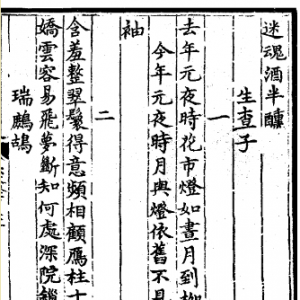 迷魂酒半醺
生查子
一
去年元夜時花市燈如晝月到
今年元夜時月與燈依舊不見
袖
二
含羞整翠鬟得意頻相顧鴈柱十
嬌雲容易飛夢斷知何處深院
瑞鷓鴣